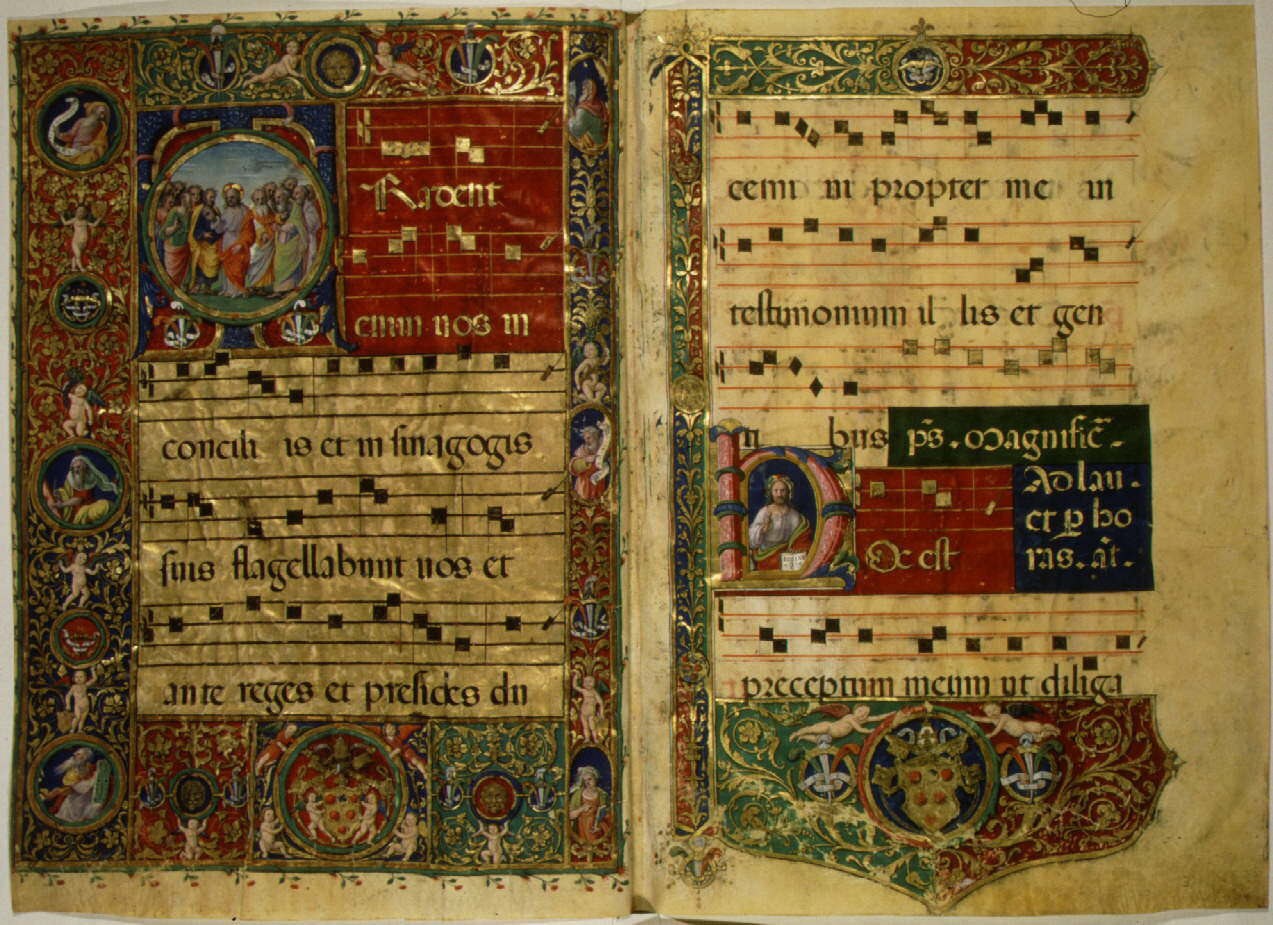 TRadent
enim uos in
concili is et in sinagogis
suis flagellabunt uos et
ante reges et presides du
cemi ni propter me in
testimonium il lis et gen
ti bus p̄s. Magnific̄.
Ad lau.
et ꝑ ho
ras. añt.
HOc est
preceptum meum ut diliga